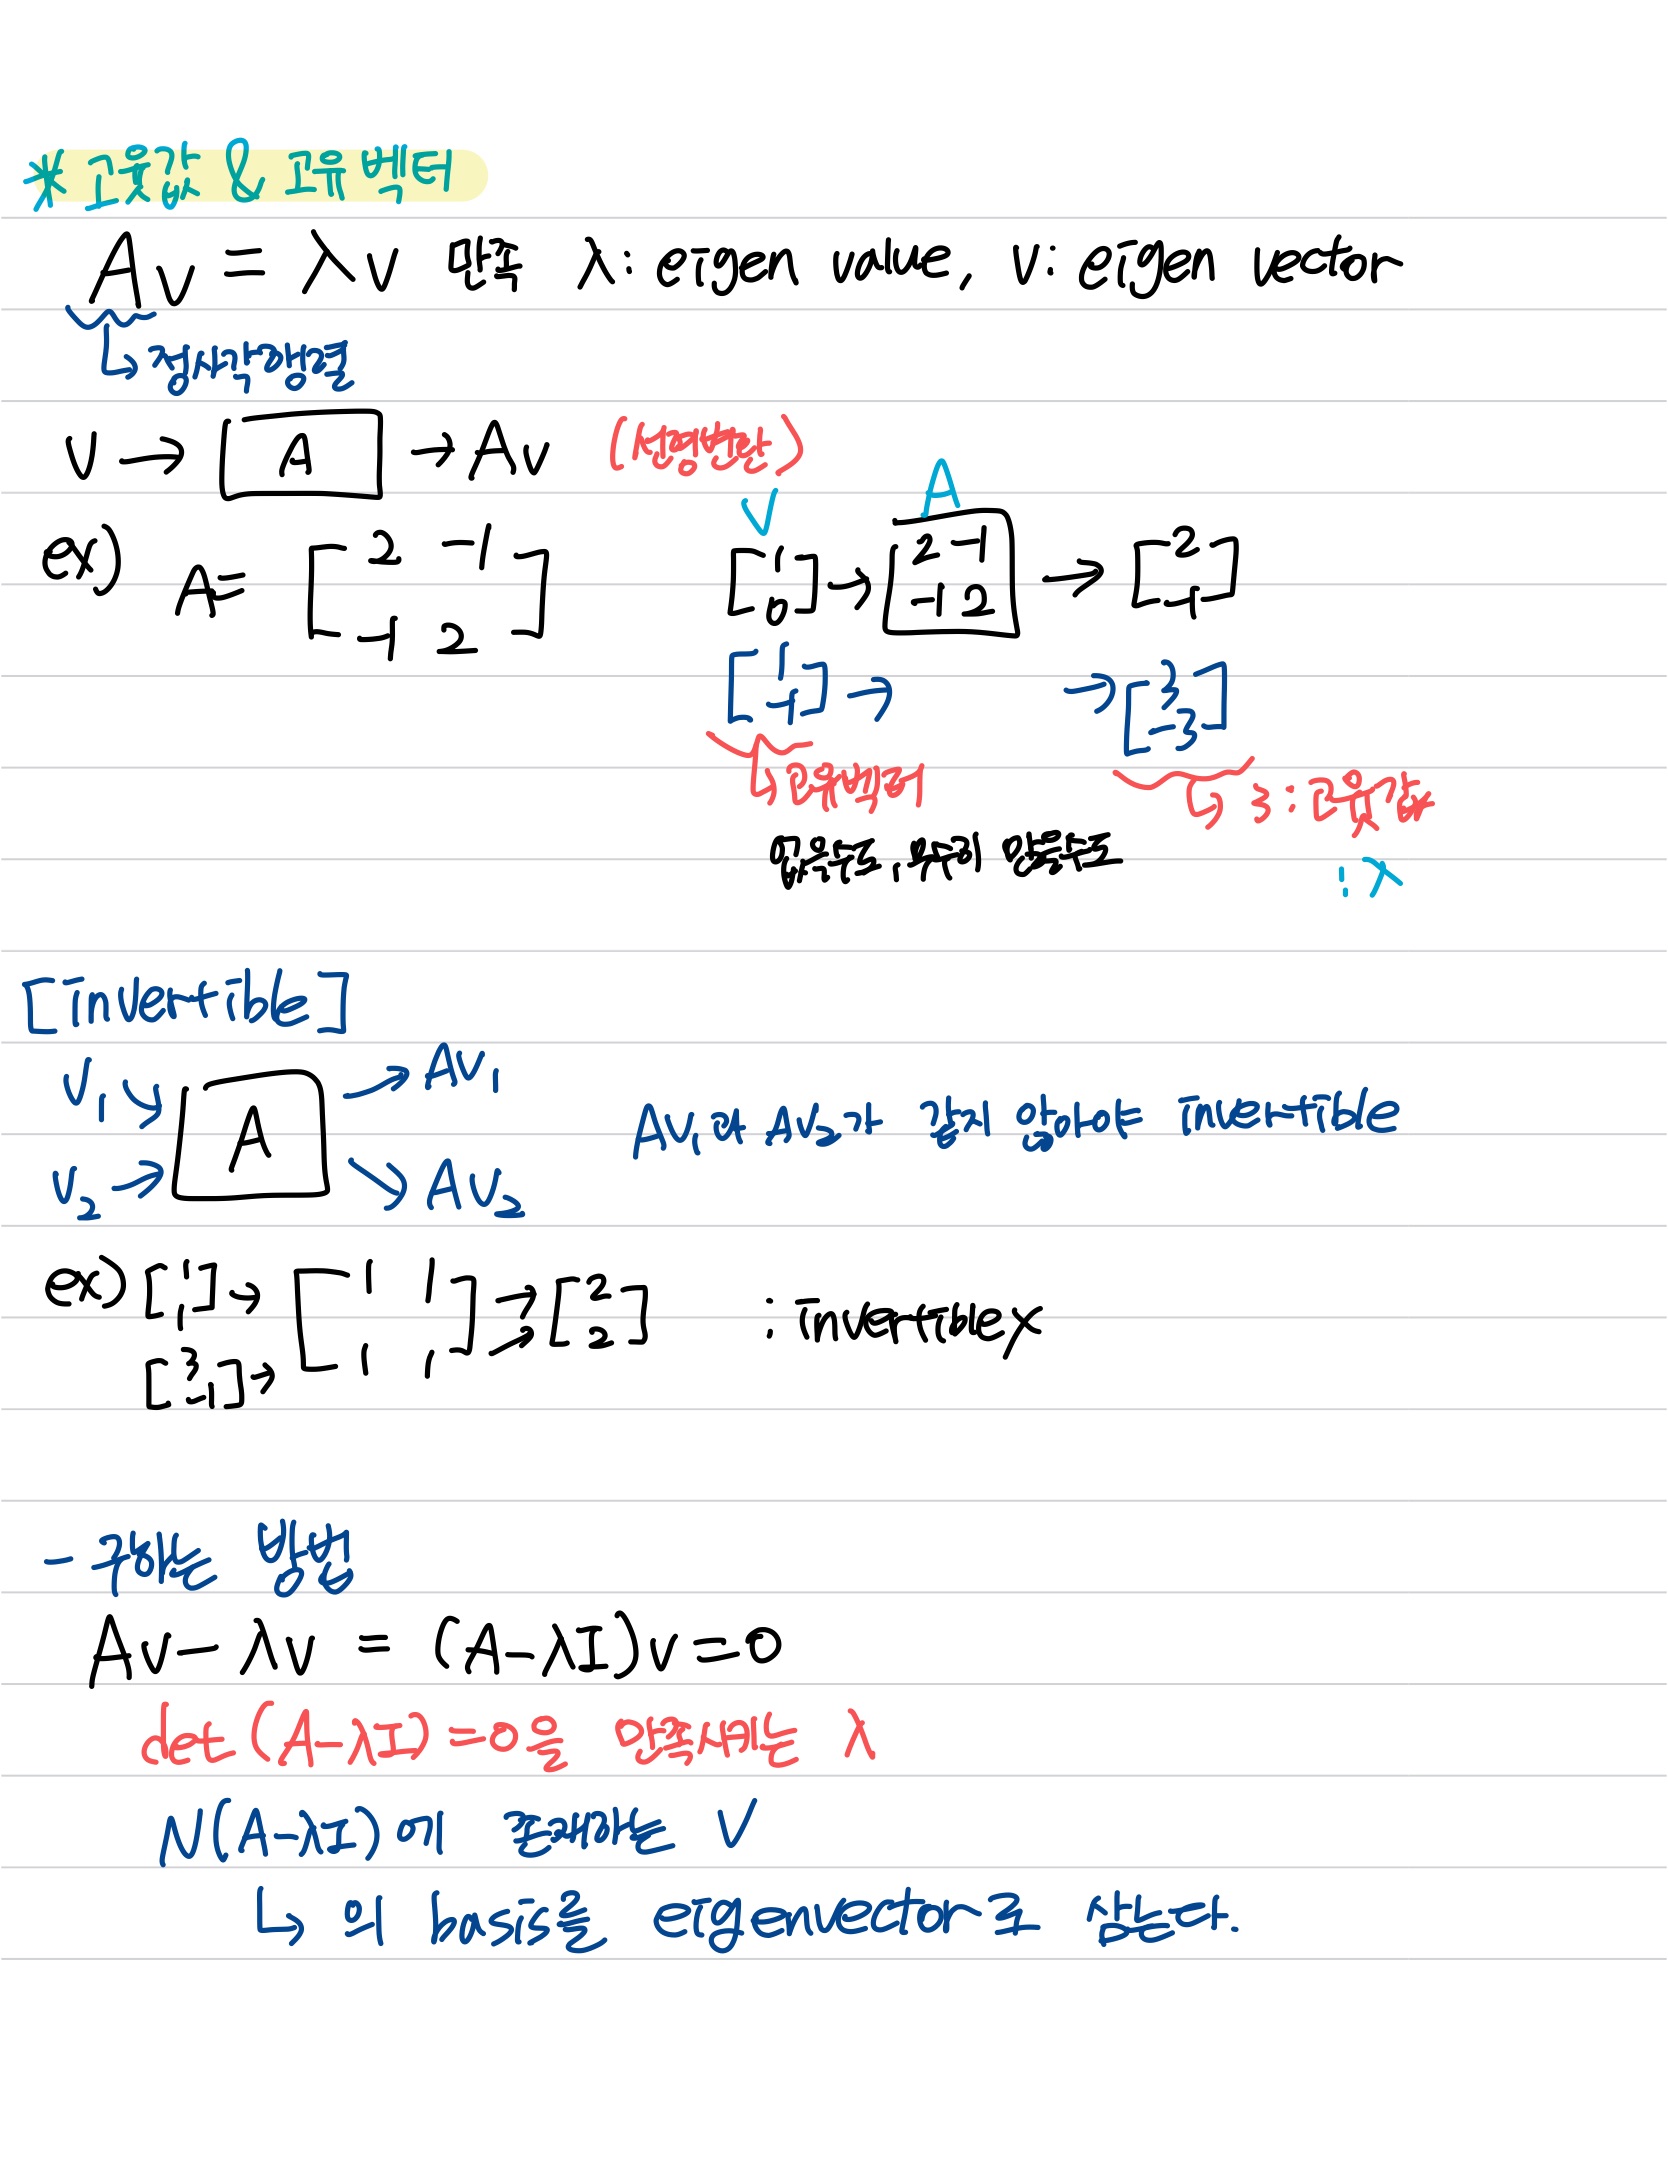 * 고윳값 & 고유벡터
Av = λv 만족 λ: eigen value, v: eigen vector
↳ 정사각행렬
v → A → Av (선형변환)
v A
ex) A= [2 -1 -1 2] [1 0] → 2 -1 -1 2 → [2 -1]
[1 -1] → → [3 -3]
↳ 고유벡터 ↳ 3: 고윳값
없을수도, 무수히 많을수도 : λ
[invertible]
v₁ → A → Av₁
v₂ → → Av₂ Av₁과 Av₂가 같지 않아야 invertible
ex) [1 1] → [1 1 1 1] → [2 2] : invertible x
[3 -1] →
- 구하는 방법
Av - λv = (A-λI)v = 0
det (A-λI) = 0을 만족시키는 λ
N(A-λI)에 존재하는 v
↳ 의 basis를 eigenvector로 삼는다.